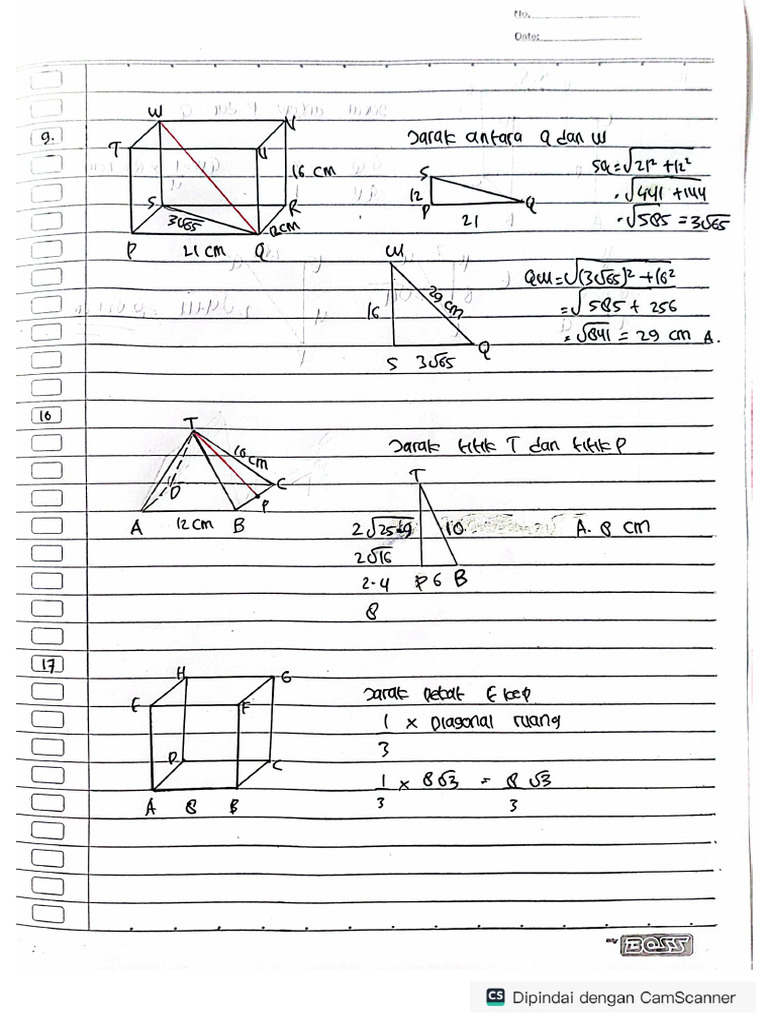 No.
Date:
9.
W
V
T
U
16 cm
S
R
3√65
12cm
P
21 cm
Q
Jarak antara Q dan W
S
12
P
21
Q
SQ = √21² + 12²
= √441 + 144
= √585 = 3√65
W
16
29 cm
S 3√65 Q
QW = √(3√65)² + 16²
= √585 + 256
= √841 = 29 cm A.
16
T
10 cm
D
C
P
A 12 cm B
Jarak titik T dan titik P
T
2√25-9 10
2√16
2·4
8
P 6 B
A. 8 cm
17
H
G
E
F
D
C
A 8 B
Jarak E ke
1/3 × Diagonal ruang
1/3 × 8√3 = 8/3 √3
my BOSS
CS Dipindai dengan CamScanner